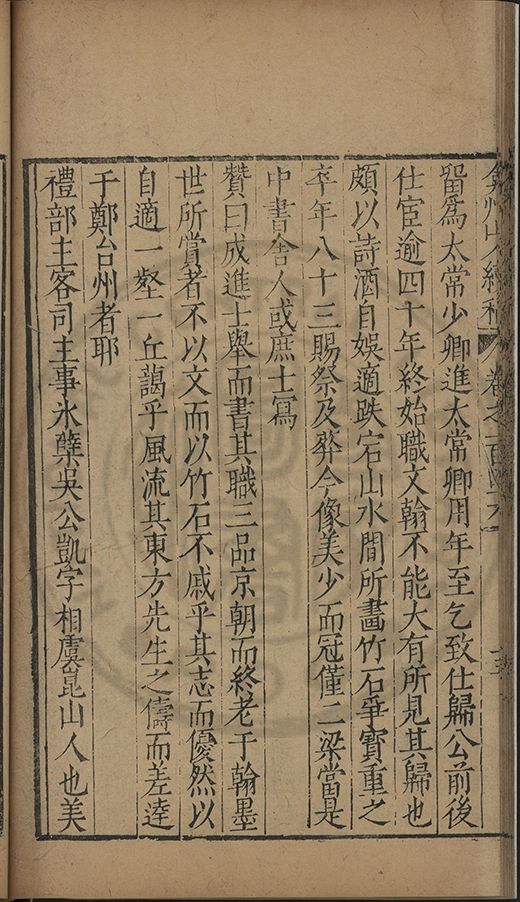 弇州山人續稿 卷之一百四十六
留爲太常少卿進太常卿用年至乞致仕歸公前後
仕宦逾四十年終始職文翰不能大有所見其歸也
頗以詩酒自娛適跌宕山水間所畫竹石爭寶重之
卒年八十三賜祭及葬今像美少而冠僅二梁當是
中書舍人或庶士寫
贊曰成進士舉而書其職三品京朝而終老于翰墨
世所賞者不以文而以竹石不戚乎其志而優然以
自適一壑一丘藹乎風流其東方先生之儔而差逹
于鄭台州者耶
禮部主客司主事氷櫱吳公凱字相虞崑山人也美